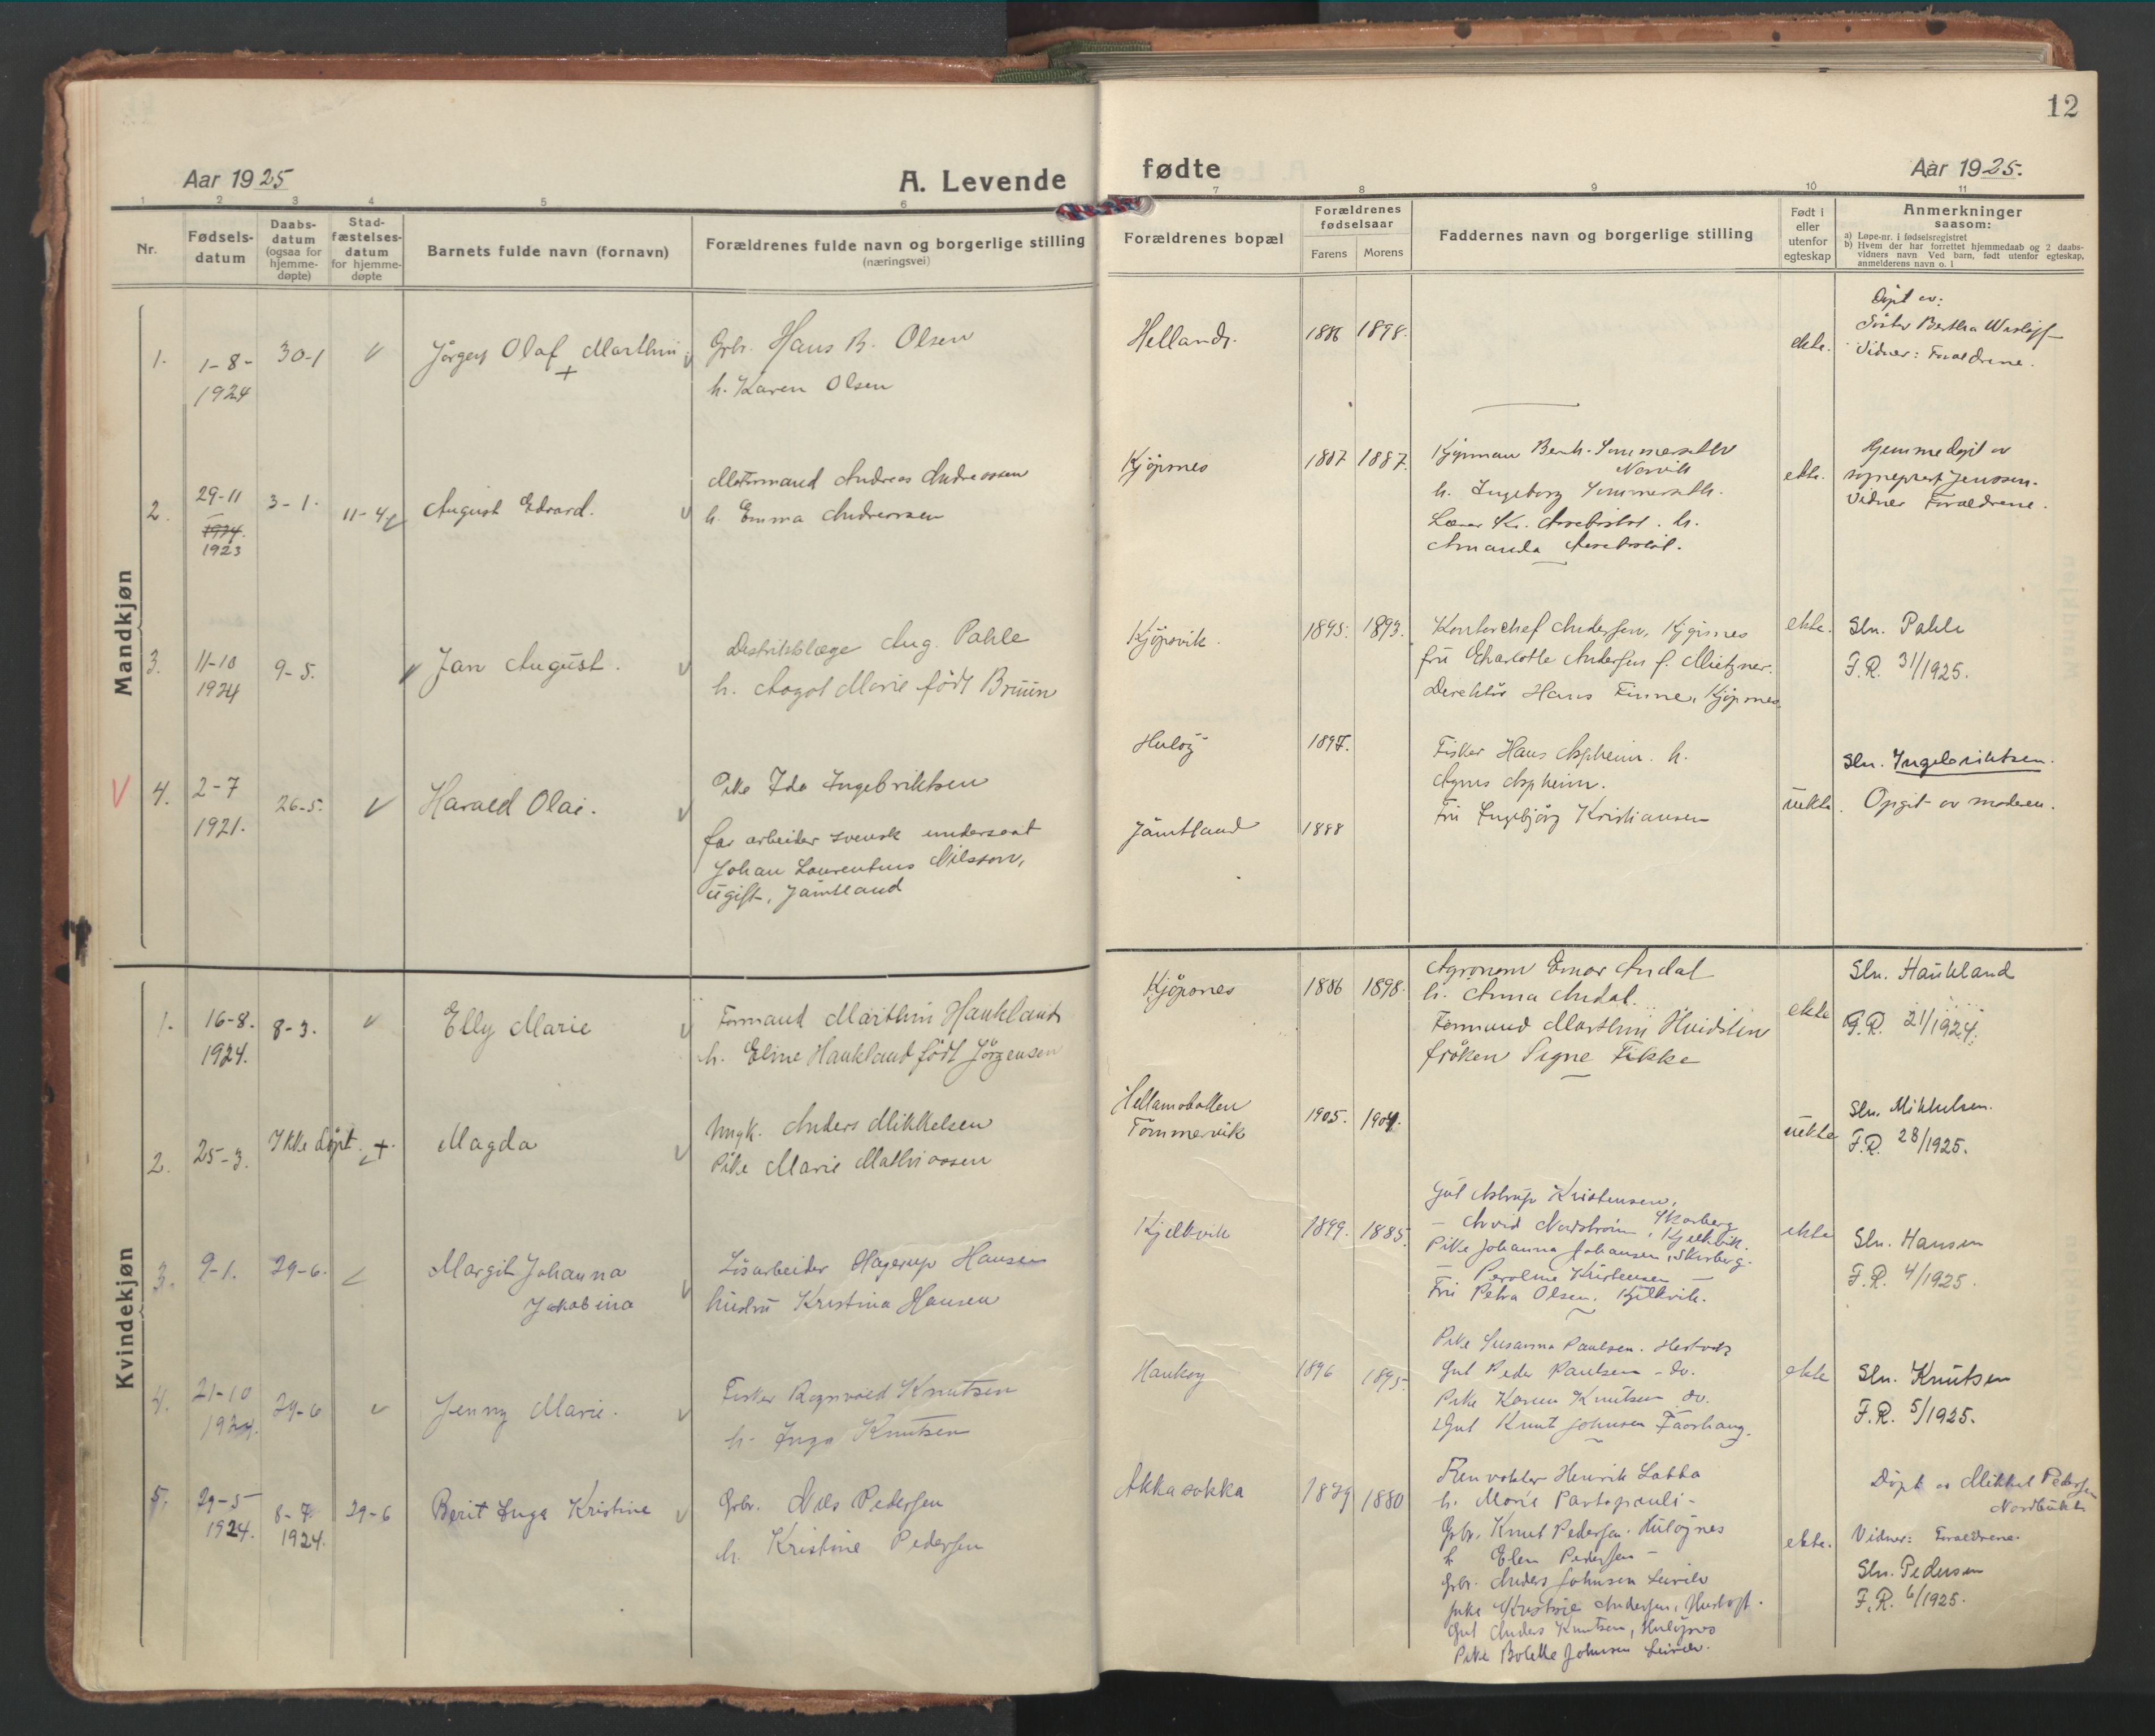 12
Aar 1925
A. Levende
fødte
Aar 1925.
1 2 3 4 5 6 7 8 9 10 11
Nr.
Fødsels-
datum
Daabs-
datum
(ogsaa for
hjemme-
døpte)
Stad-
fæstelses-
datum
for hjemme-
døpte
Barnets fulde navn (fornavn)
Forældrenes fulde navn og borgerlige stilling
(næringsvei)
Forældrenes bopæl
Forældrenes
fødselsaar
Farens Morens
Faddernes navn og borgerlige stilling
Født i
eller
utenfor
egteskap
Anmerkninger
saasom:
a) Løpe-nr. i fødselsregistret
b) Hvem der har forrettet hjemmedaab og 2 daabs-
vidners navn Ved barn, født utenfor egteskap,
anmelderens navn o. l
Mandkjøn
1. 1-8-
1924
30-1
Jørgen Olaf + Marthin
Grbr. Hans B. Olsen
h. Karen Olsen
Helland
1886 1898.
ekte.
Døpt av:
Søster Bertha
Vidner: Foraldrene.
2. 29-11
1924.
1923
3-1.
11-4
August Edvard.
Motormand Andreas Andreassen
h. Emma Andreassen
Kjøpsnes
1887 1887.
Kjøpman Benh.
Narvik
h. Ingeborg
Lærer Kr. h.
Amanda
ekte.
Hjemmedøpt av
sogneprest Jenssen.
Vidner Foraldrene.
3. 11-10
1924
9-5.
Jan August.
Distriktslæge Aug. Pahle
h. Aagot Marie født Bruun
Kjøpsvik.
1895. 1893.
Kontorchef Andersen, Kjøpsnes
fru Charlotte Andersen f. Mietzner.
Direktør Hans Finne, Kjøpsnes.
ekte.
Sln. Pahle
F.R. 31/1925.
4. 2-7
1921.
26-5.
Harald Olai.
Pike Ida Ingebriktsen
far arbeider svensk undersaat
Johan Laurentius Nilsson,
ugift, Jämtland
Huløy
1897.
Jämtland
1888
Fisker Hans Aspheim. h.
Agnes Aspheim.
Fru Ingebjørg Kristiansen
uekte.
Sln. Ingebriktsen.
Opgit av moderen.
Kvindekjøn
1. 16-8.
1924.
8-3.
Elly Marie
Formand Marthin Haukland
h. Eline Haukland født Jørgensen
Kjøpsnes
1886 1898.
Agronom Einar Andal
h. Anna Andal.
Formand Marthin
frøken Signe Fikke
ekte
Sln. Haukland
F.R. 21/1924.
2. 25-3.
Ikke døpt. +.
Magda
Ungk. Anders Mikkelsen
Pike Marie Mathiassen
Hellamobotten
Tømmervik
1905. 1904.
uekte
Sln. Mikkelsen.
F.R. 28/1925.
3. 9-1.
29-6.
Margit Johanna
Jakobina
Løsarbeider Hagerup Hansen
hustru Kristina Hansen
Kjelkvik
1899. 1885.
Gut Astrup Kristensen,
Skarberg
— Arvid Nordstrøm, Kjelkvik.
Pike Johanna Johansen, Skarberg.
— Peroline Kristensen —
Fru Petra Olsen, Kjelkvik.
ekte
Sln. Hansen
F.R. 4/1925.
4. 21-10
1924.
29-6
Jenny Marie.
Fisker Ragnvald Knutsen
h. Inga Knutsen
Haukøy
1896 1895.
Pike Susanna Paulsen.
Gut Peder Paulsen - do.
Pike Karen Knutsen do.
Gut Knut Johnsen
ekte
Sln. Knutsen
F.R. 5/1925.
5. 29-5
1924.
8-7
1924.
29-6
Berit Inga Kristine
Grbr. Nils Pedersen
h. Kristine Pedersen
Akkasokka
1879 1880
Henrik Labba
h. Marie Partapauli -
Grbr. Knut Pedersen. Huløynes
h Elen Pedersen —
Grbr. Anders Johnsen
Pike Kristine Andersen,
Gut Anders Knutsen, Huløynes
Pike Bolette Johnsen
ekte.
Døpt av Mikkel Pedersen
Nordbukt
Vidner: Foraldrene.
Sln. Pedersen
F.R. 6/1925.